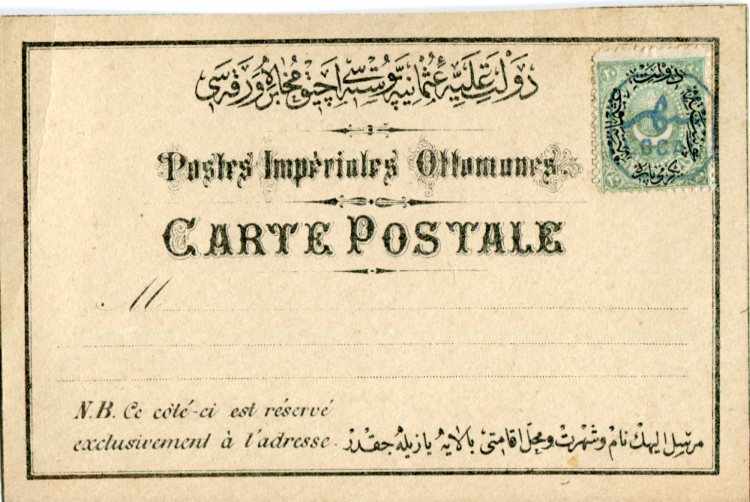 دولت علیه عثمانیه پوسته سی آچیق مخابره ورقه سی
Postes Impériales Ottomanes.
CARTE POSTALE
M
N.B. Ce côté-ci est réservé
exclusivement à l'adresse.
مرسل الیهك نام و شهرت و محل اقامتی بالایه یازیله جقدر
دولت
یكرمی پاره